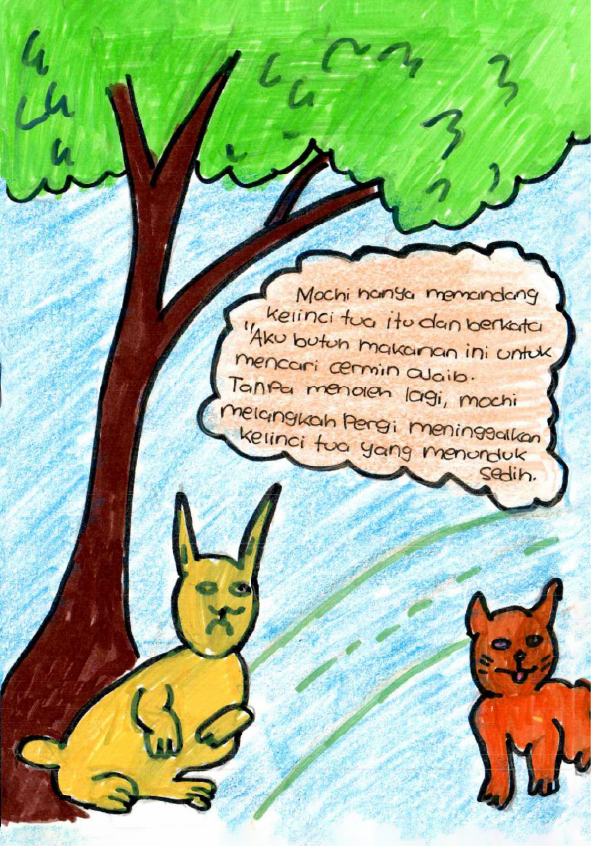 Mochi hanya memandang
kelinci tua itu dan berkata
"Aku butuh makanan ini untuk
mencari cermin aJaib.
Tanpa menoleh lagi, mochi
melangkah Pergi meninggalkan
kelinci tua yang menunduk
sedih.